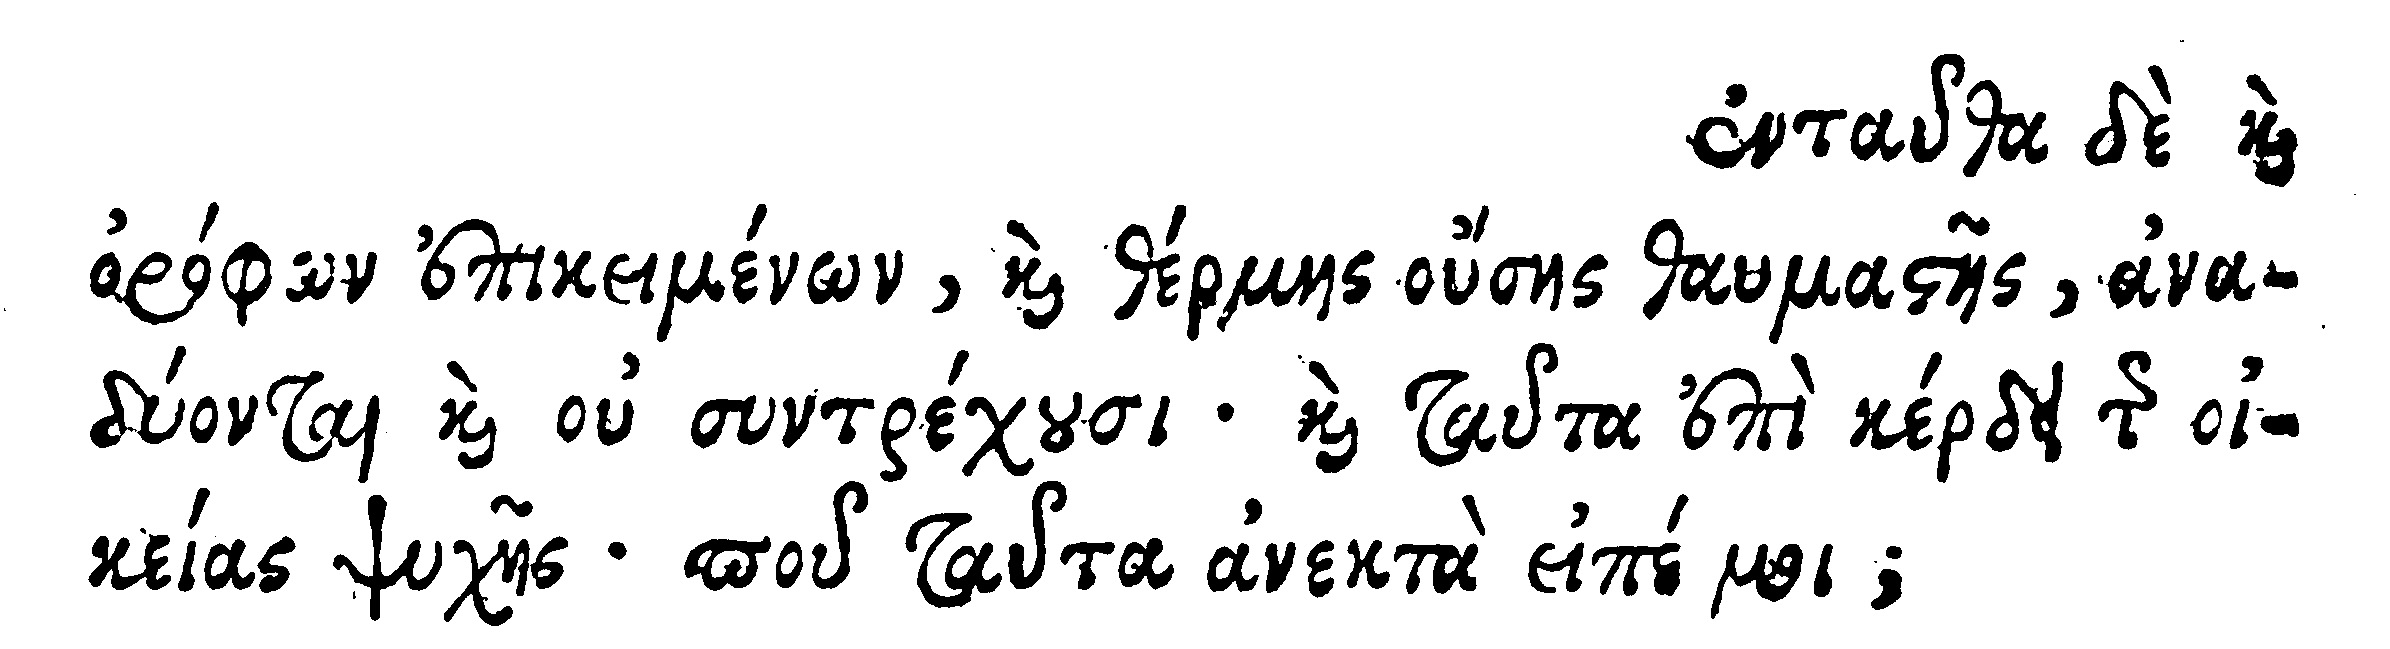 ἐνταῦθα δὲ καὶ
ὀρόφων ἐπικειμένων, καὶ θέρμης οὔσης θαυμαστῆς, ἀνα-
δύονται καὶ οὐ συντρέχουσι· καὶ ταῦτα ἐπὶ κέρδει τῆς οἰ-
κείας ψυχῆς· ποῦ ταῦτα ἀνεκτὰ εἰπέ μοι;